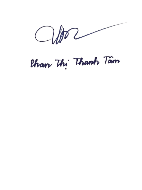 Phan Thị Thanh Tâm